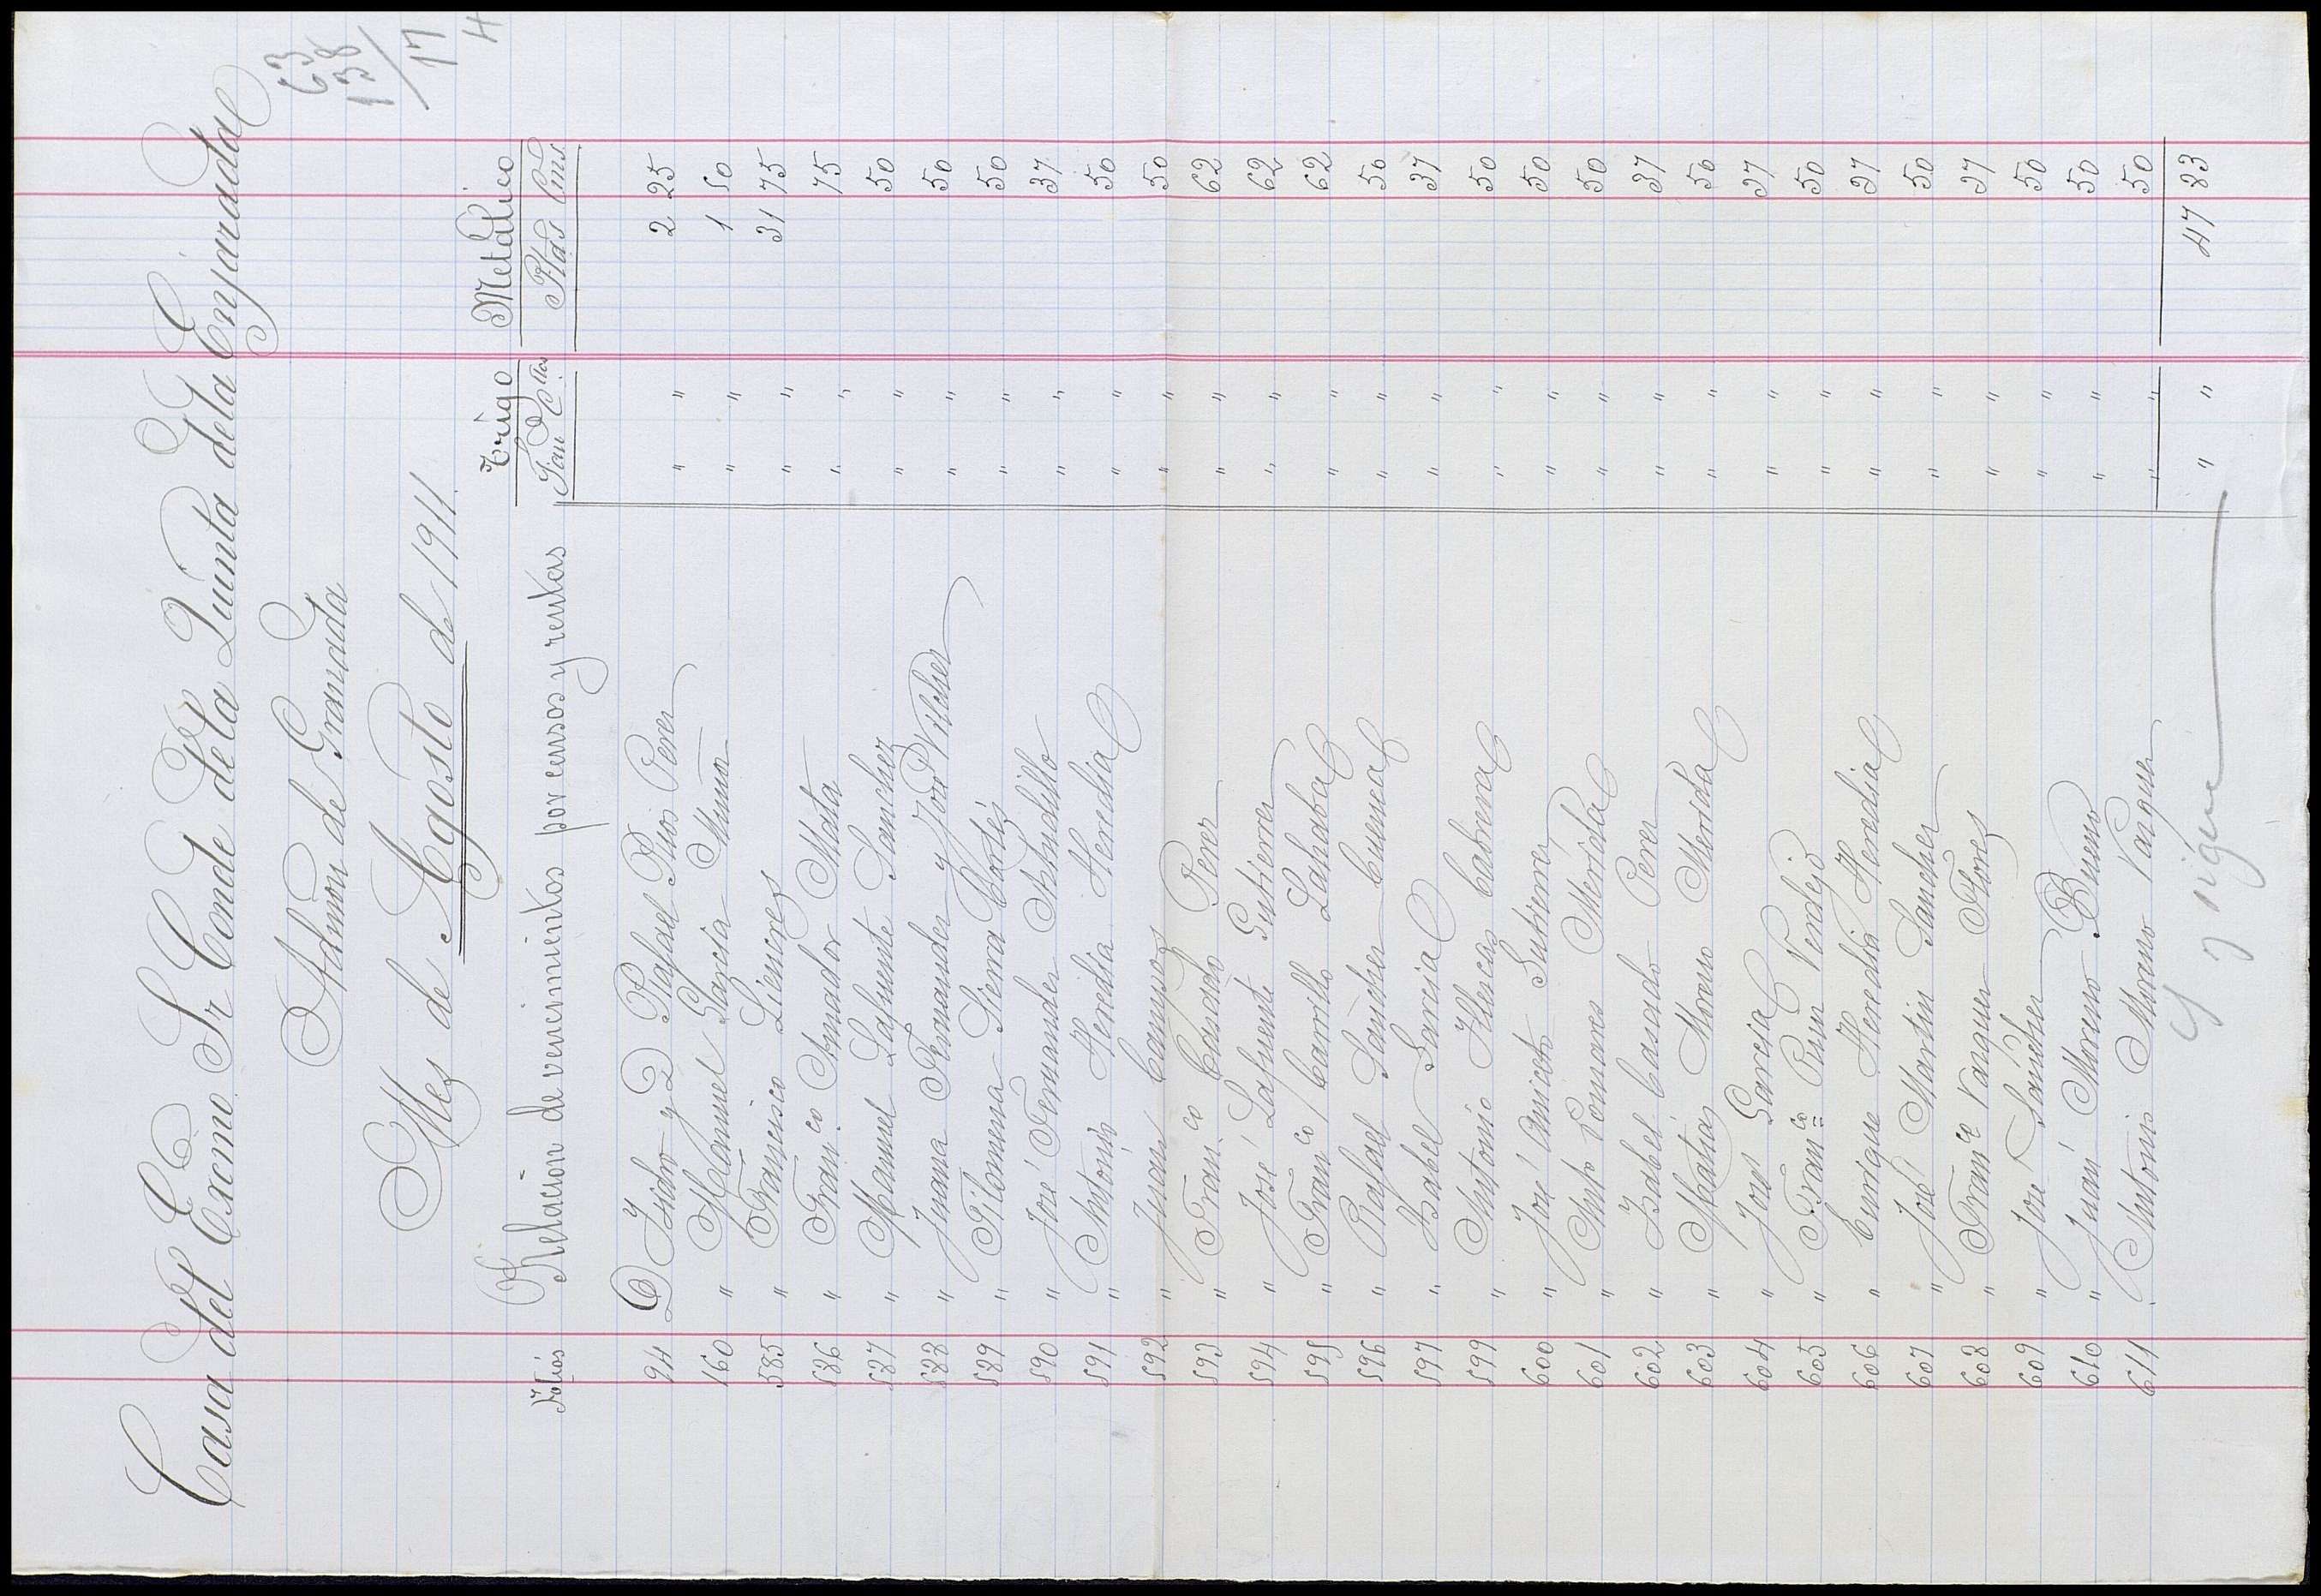 Casa del Excmo Sr Conde de la Quinta de la Enjarada
63
138
17
4
Admon de Granada
Mes de Agosto de 1911
Folios Relacion de vencimientos por censos y rentas Trigo Metalico
Fan C.llos Ptas Cms
94 D Isidro y D Rafael Rios Perez " " 2 25
160 " Manuel Garcia " " 1 50
585 " Francisco Liencres " " 31 75
586 " Fran.co Amador Mata " " 75
587 " Manuel Lafuente Sanchez " " 50
588 " Juana Fernandez y José Vilchez " " 50
589 " Filomena Sierra Cortés " " 50
590 " José Fernandez Astudillo " " 37
591 " Antonio Heredia Heredia " " 50
592 " Juan Campos " " 50
593 " Fran.co Casado Perez " " 62
594 " José Lafuente Gutierrez " " 62
595 " Fran.co Carrillo Lahaba " " 62
596 " Rafael Sanchez Cuenca " " 50
597 " Isabel Garcia " " 37
599 " Antonio Illescas Cabrera " " 50
600 " José Aniceto Gutierrez " " 50
601 " Anto Comares Merida " " 50
602 " Isabel Casado Perez " " 37
603 " Matias Moreno Merida " " 50
604 " José Garcia " " 37
605 " Fran.co Ruiz Verdejo " " 50
606 " Enrique Heredia Heredia " " 37
607 " José Martin Sanchez " " 50
608 " Fran.co Vazquez Flores " " 37
609 " José Sanchez " " 50
610 " Juan Moreno Bueno " " 50
611 " Antonio Moreno Vazquez " " 50
" " 47 83
y sigue